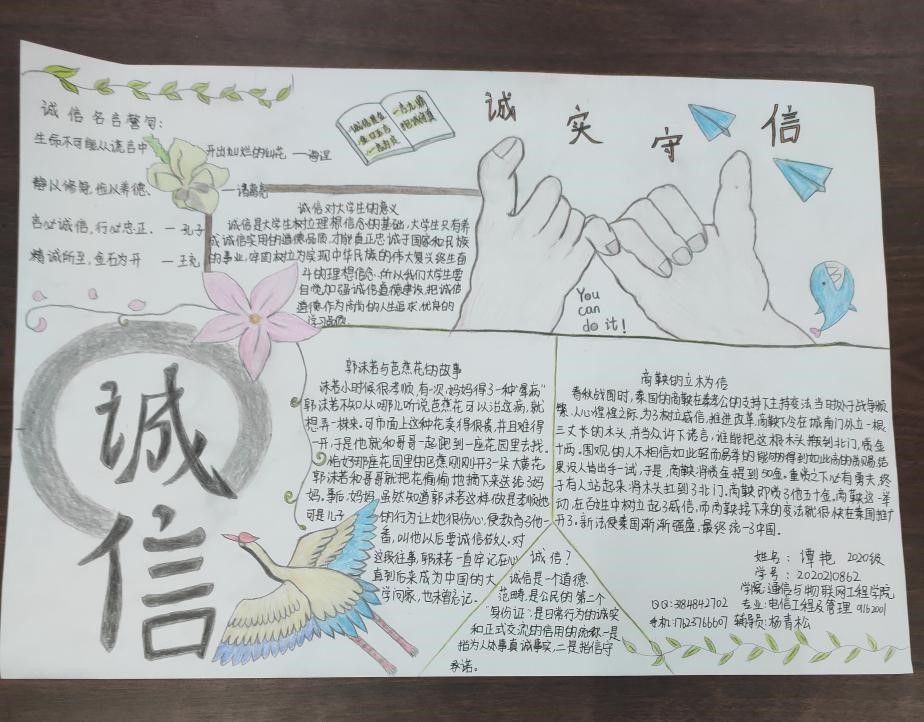 诚实守信
诚信名言警句:
生命不可能从谎言中开出灿烂的鲜花 —海涅
静以修身,俭以养德、—诸葛亮
言必诚信,行必忠正. —孔子
精诚所至,金石为开 —王充
诚信对大学生的意义
诚信是大学生树立理想信念的基础,大学生只有养
成诚信实用的道德品质,才能真正忠诚于国家和民族
的事业,牢固树立为实现中华民族的伟大复兴终生奋
斗的理想信念.所以我们大学生要
自觉加强诚信道德建设,把诚信
道德作为高尚的人生追求.优良的
You
can
do it!
诚信
郭沫若与芭蕉花的故事
沫若小时候很孝顺,有一次,妈妈得了一种"晕病"
郭沫若不知从哪儿听说芭蕉花可以治这病,就
想弄一株来.可市面上这种花卖得很贵,并且难得
一开,于是他就和哥哥一起跑到一座花园里去找,
恰好那座花园里的芭蕉刚刚开了一朵大黄花,
郭沫若和哥哥就把花偷偷地摘下来送给了妈
妈,事后,妈妈虽然知道郭沫若这样做是孝顺她
可是儿子的行为让她很伤心,便教育了他一
番,叫他以后要诚信做人.对
这段往事,郭沫若一直牢记在心
直到后来成为中国的大
学问家,也未曾忘记.
商鞅的立木为信
春秋战国时,秦国的商鞅在秦孝公的支持下主持变法.当时处于战争频
繁、人心惶惶之际,为了树立威信,推进改革,商鞅下令在城南门外立一根
三丈长的木头,并当众许下诺言,谁能把这根木头搬到北门,赏金
十两,围观的人不相信如此轻而易举的能够得到如此高的赏赐,结
果没人肯出手一试,于是,商鞅将赏金提到50金.重赏之下必有勇夫,终
于有人站起来,将木头扛到了北门,商鞅即赏了他五十金.商鞅这一举
动,在百姓中树立起了威信,而商鞅接下来的变法就很快在秦国推广
开了.新法使秦国渐渐强盛,最终统一了中国.
诚信?
诚信是一个道德、
范畴,是公民的第二个
"身份证".是日常行为的诚实
和正式交流的信用的统称.一是
指为人处事真诚事实,二是指信守
承诺。
姓名: 谭艳 2020级
学号: 2020210862
学院:通信与物联网工程学院
QQ:3184842702 专业:电信工程及管理 9162001
手机:17623766607 辅导员:杨青松